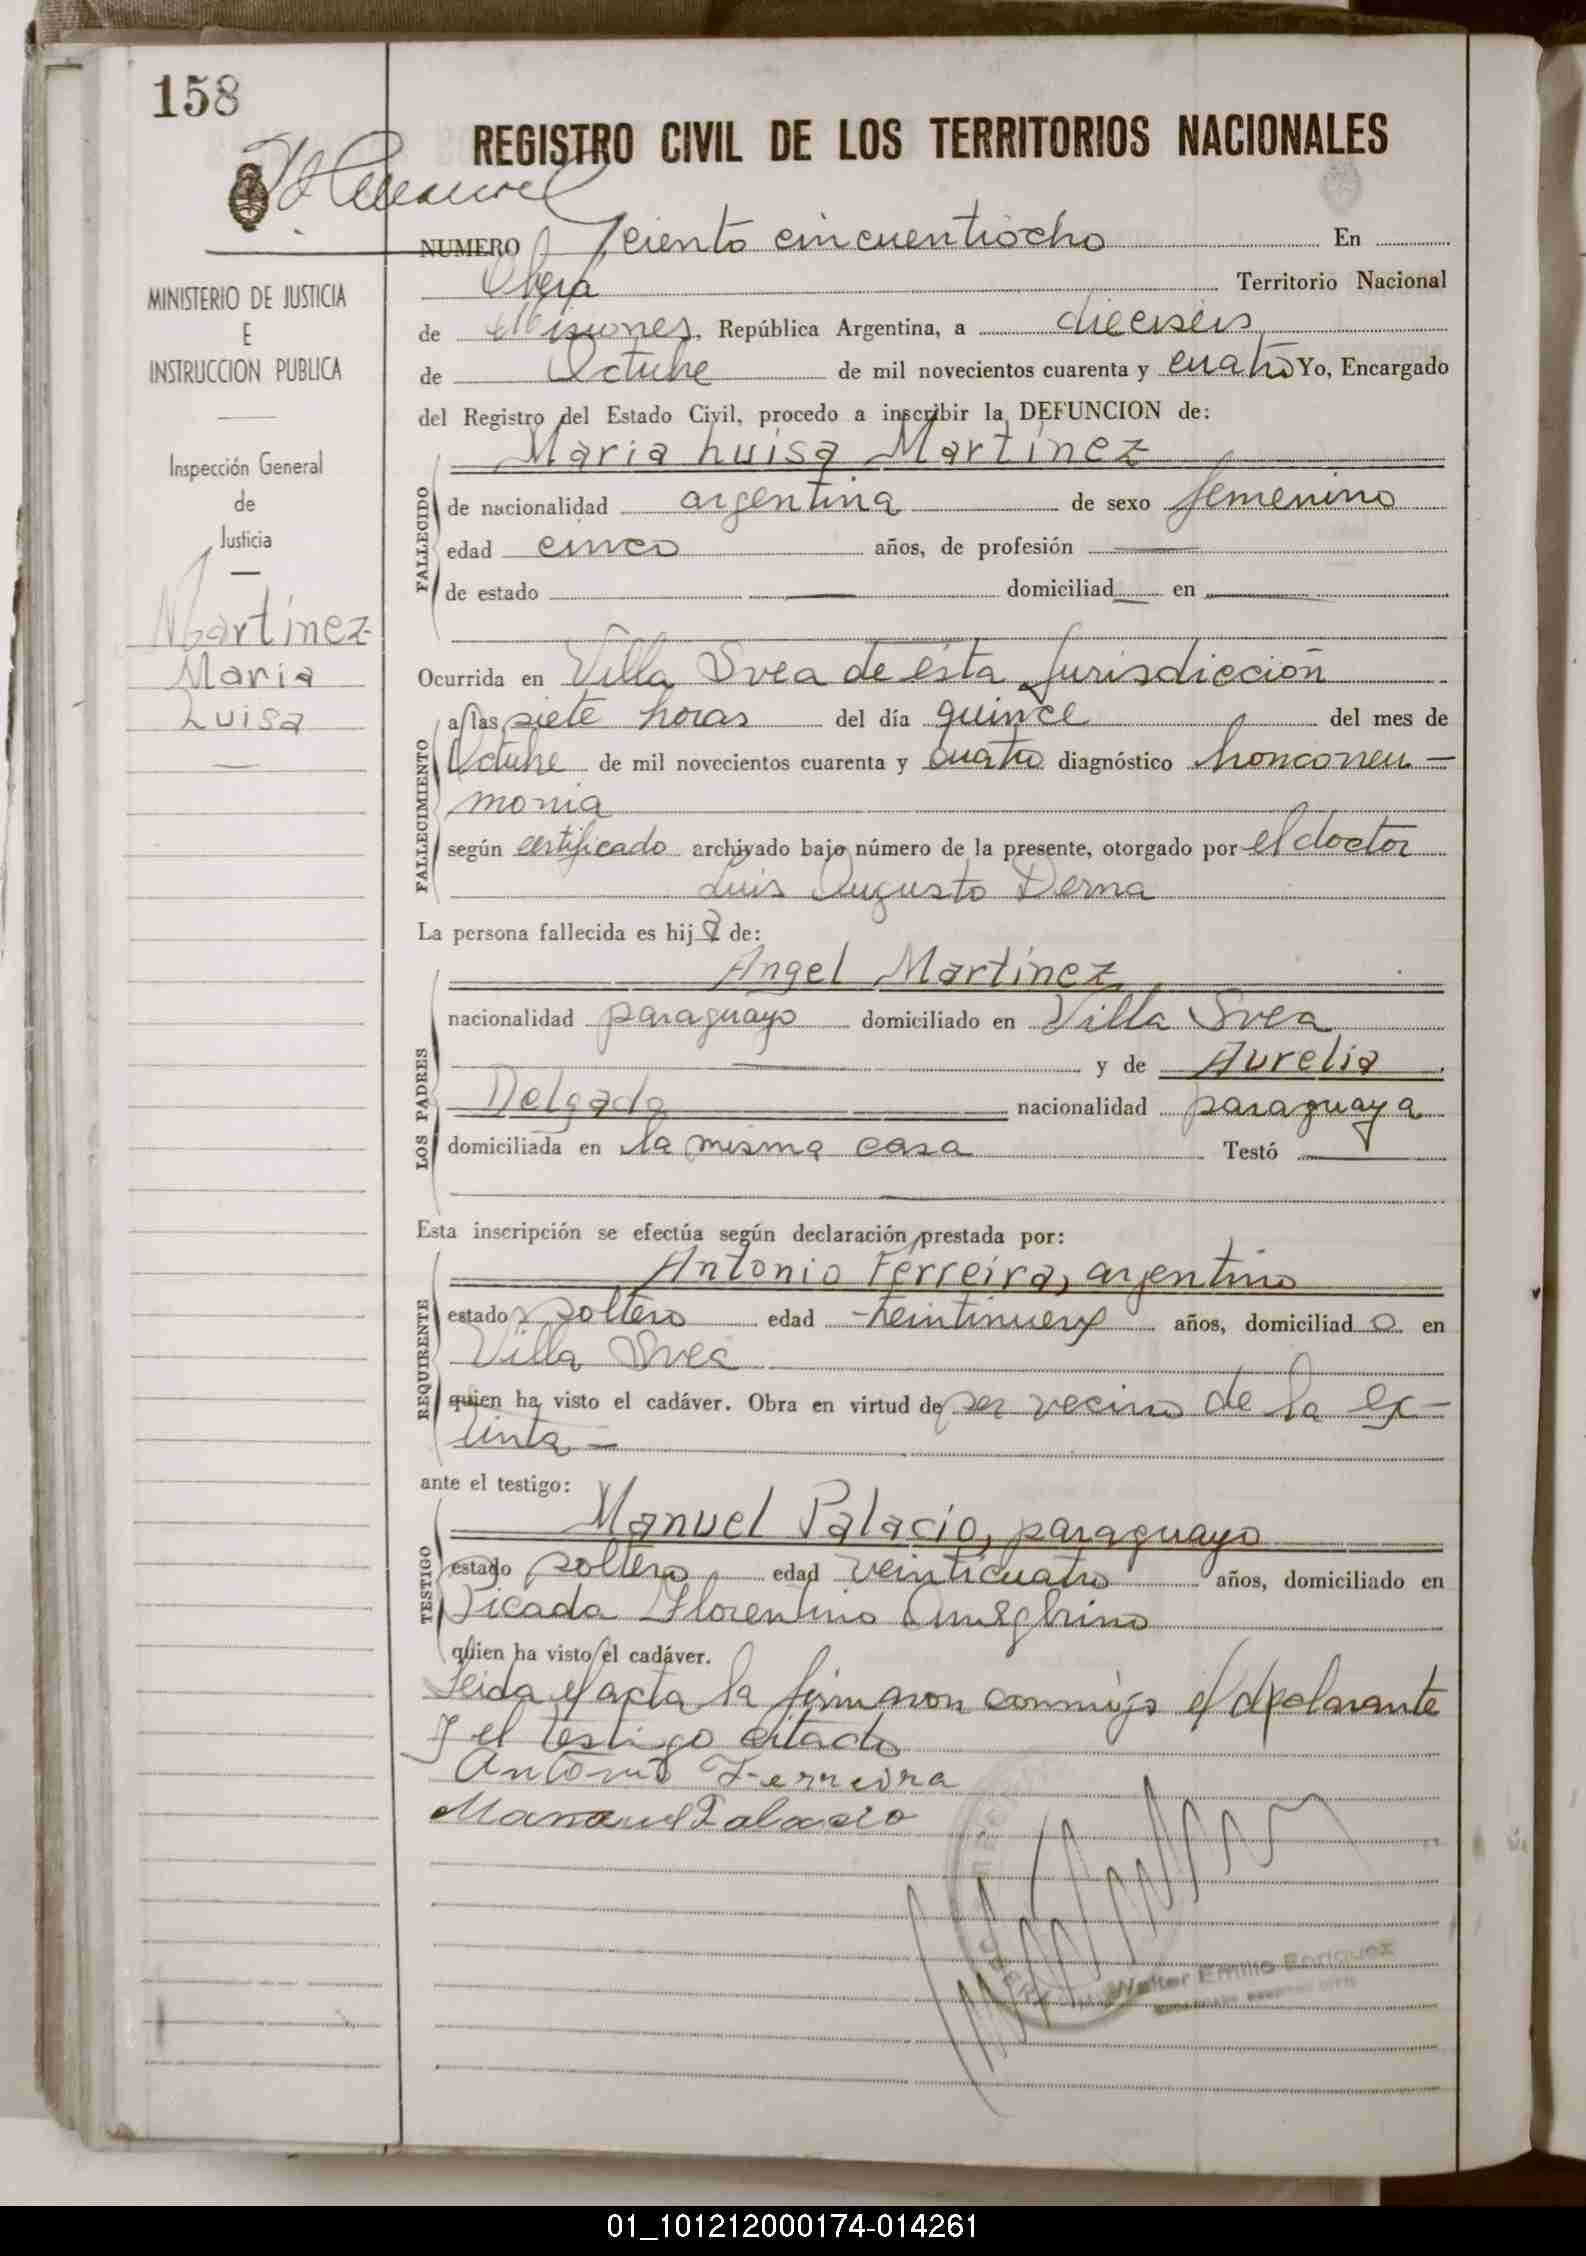 158
REGISTRO CIVIL DE LOS TERRITORIOS NACIONALES
NUMERO ciento cincuentiocho En
Oberá Territorio Nacional
de Misiones, República Argentina, a dieciséis
de Octubre de mil novecientos cuarenta y cuatro Yo, Encargado
del Registro del Estado Civil, procedo a inscribir la DEFUNCION de:
MINISTERIO DE JUSTICIA
E
INSTRUCCION PUBLICA
Inspección General
de
Justicia
Martínez
Maria
Luisa
FALLECIDO
Maria Luisa Martínez
de nacionalidad argentina de sexo femenino
edad cinco años, de profesión
de estado domiciliad en
Ocurrida en Villa Svea de ésta Jurisdicción
FALLECIMIENTO
a las siete horas del día quince del mes de
Octubre de mil novecientos cuarenta y cuatro diagnóstico bronconeu-
monia
según certificado archivado bajo número de la presente, otorgado por el doctor
Luis Augusto Derna
La persona fallecida es hija de:
LOS PADRES
Angel Martínez
nacionalidad paraguayo domiciliado en Villa Svea
y de Aurelia
Delgado nacionalidad paraguaya
domiciliada en la misma casa Testó
Esta inscripción se efectúa según declaración prestada por:
REQUIRENTE
Antonio Ferreira, argentino
estado soltero edad veintinueve años, domiciliado en
Villa Svea
quien ha visto el cadáver. Obra en virtud de ser vecino de la ex-
tinta -
ante el testigo:
TESTIGO
Manuel Palacio, paraguayo
estado soltero edad veinticuatro años, domiciliado en
Picada Florentino Ameghino
quien ha visto el cadáver.
Leida el acta la firmaron conmigo el declarante
y el testigo citado
Antonio Ferreira
Manuel Palacio
Walter Emilio Enriquez
01_101212000174-014261